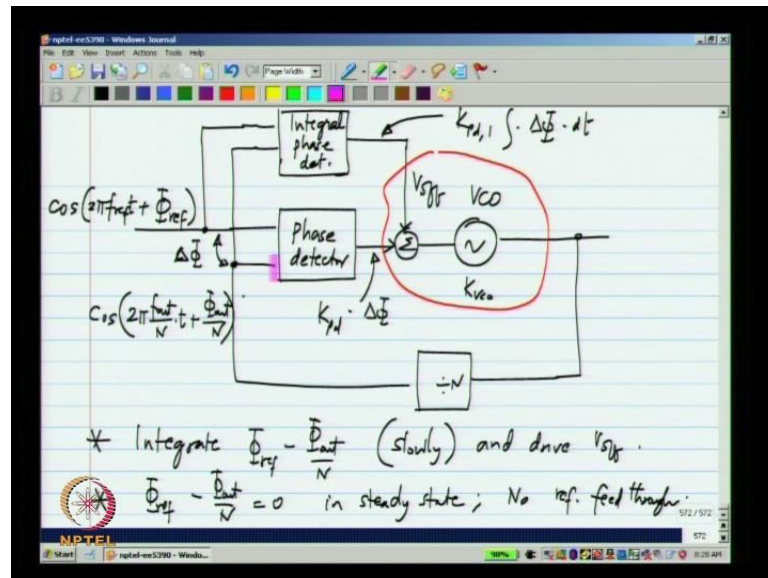 nptel-ee5390 - Windows Journal
File Edit View Insert Actions Tools Help
Page Width
Integral
phase
det.
K_pd,I ∫ · ΔΦ · dt
cos(2πf_ref t + Φ_ref)
V_off VCO
ΔΦ
phase
detector
Σ
K_vco
cos(2π f_out/N · t + Φ_out/N)
K_pd · ΔΦ
÷N
* Integrate Φ_ref - Φ_out/N (slowly) and drive V_off.
* Φ_ref - Φ_out/N = 0 in steady state; No ref. feed through.
572 / 572
572
NPTEL
Start nptel-ee5390 - Windo... 98% 8:28 AM